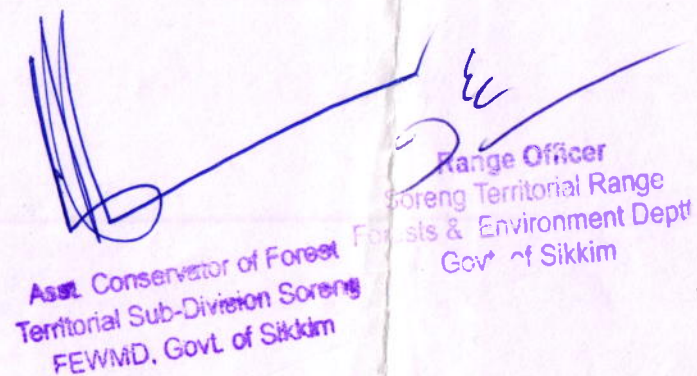 Asst. Conservator of Forest
Territorial Sub-Division Soreng
FEWMD, Govt. of Sikkim
Range Officer
Soreng Territorial Range
Forests & Environment Deptt
Govt of Sikkim